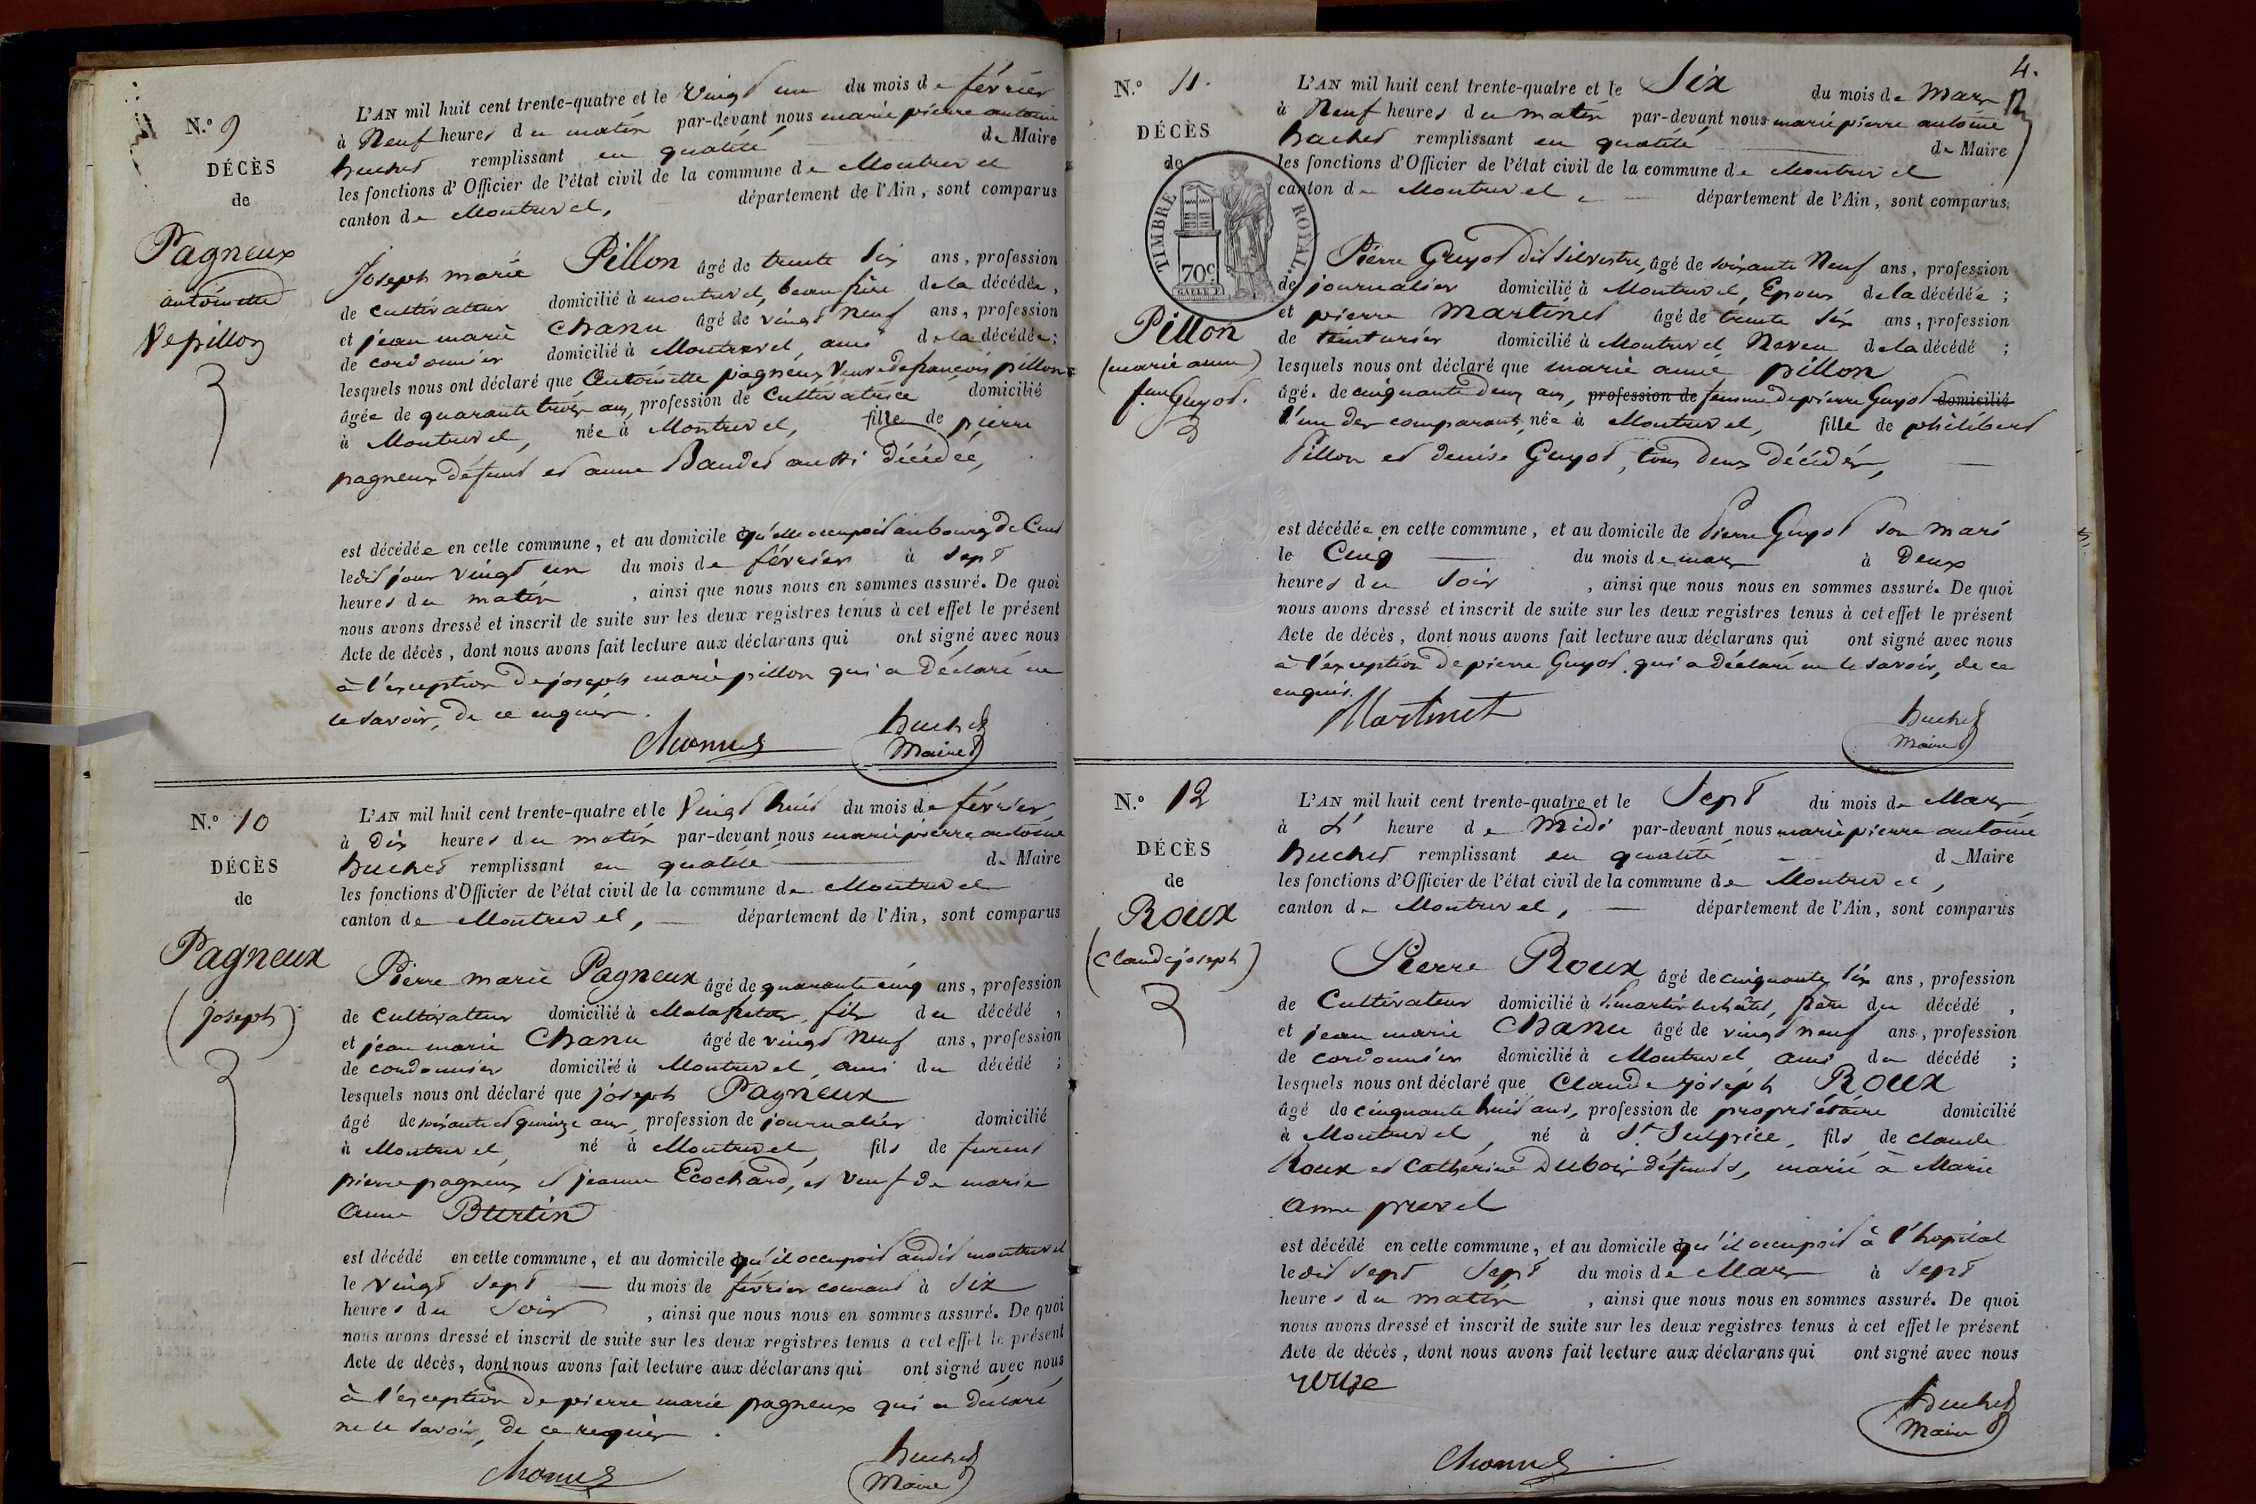 N.º 9
DÉCÈS
de
Pagneux
antoinette
Ve pillon
L'AN mil huit cent trente-quatre et le Vingt un du mois de février
à Neuf heures du matin par-devant nous marie pierre antoine
huchet remplissant en qualité de Maire
les fonctions d'Officier de l'état civil de la commune de Montrevel
canton de Montrevel, département de l'Ain, sont comparus
Joseph marie Pillon âgé de trente six ans, profession
de cultivateur domicilié à montrevel, beau frère de la décédée,
et jean marie Chanu âgé de vingt neuf ans, profession
de cordonnier domicilié à Montrevel, ami de la décédée;
lesquels nous ont déclaré que Antoinette pagneux Veuve de françois pillon
âgée de quarante trois ans, profession de Cultivatrice domicilié
à Montrevel, née à Montrevel, fille de pierre
pagneux défunt et anne Baudet aussi Décédée,
est décédée en cette commune, et au domicile qu'elle occupoit au bourg de
ledit jour vingt un du mois de février à sept
heures du matin, ainsi que nous nous en sommes assuré. De quoi
nous avons dressé et inscrit de suite sur les deux registres tenus à cet effet le présent
Acte de décès, dont nous avons fait lecture aux déclarans qui ont signé avec nous
à l'exception de joseph marie pillon qui a Déclaré ne
le savoir, de ce enquis.
Chanu
huchet
Maire
N.º 10
DÉCÈS
de
Pagneux
(joseph)
L'AN mil huit cent trente-quatre et le Vingt huit du mois de février
à Dix heures du matin par-devant nous marie pierre antoine
huchet remplissant en qualité de Maire
les fonctions d'Officier de l'état civil de la commune de Montrevel
canton de Montrevel, département de l'Ain, sont comparus
Pierre marie Pagneux âgé de quarante cinq ans, profession
de cultivateur domicilié à Malafretaz, fils du décédé,
et jean marie Chanu âgé de vingt neuf ans, profession
de cordonnier domicilié à Montrevel, ami du décédé;
lesquels nous ont déclaré que joseph Pagneux
âgé de soixante et quinze ans, profession de journalier domicilié
à Montrevel, né à Montrevel, fils de furent
pierre pagneux et jeanne Ecochard, et veuf de marie
anne Burtin
est décédé en cette commune, et au domicile qu'il occupoit audit montrevel
le vingt sept du mois de février courant à six
heures du soir, ainsi que nous nous en sommes assuré. De quoi
nous avons dressé et inscrit de suite sur les deux registres tenus à cet effet le présent
Acte de décès, dont nous avons fait lecture aux déclarans qui ont signé avec nous
à l'exception de pierre marie pagneux qui a Déclaré
ne le savoir, de ce requis.
Chanu
huchet
Maire
4.
N.º 11.
DÉCÈS
de
TIMBRE ROYAL.
70c.
Pillon
(marie anne)
fme Guyot.
L'AN mil huit cent trente-quatre et le Six du mois de Mars
à Neuf heures du matin par-devant nous marie pierre antoine
huchet remplissant en qualité de Maire
les fonctions d'Officier de l'état civil de la commune de Montrevel
canton de Montrevel, département de l'Ain, sont comparus
Pierre Guyot dit silvestre, âgé de soixante Neuf ans, profession
de journalier domicilié à Montrevel, Epoux de la décédée;
et pierre Martinet âgé de trente six ans, profession
de teinturier domicilié à Montrevel Neveu de la décédé;
lesquels nous ont déclaré que marie anne pillon
âgé. de cinquante deux ans, profession de femme de pierre Guyot domicilié
l'un des comparants, née à Montrevel, fille de philibert
Pillon et denise Guyot, tous deux décédés,
est décédée en cette commune, et au domicile de Pierre Guyot son mari
le Cinq du mois de mars à Deux
heures du soir, ainsi que nous nous en sommes assuré. De quoi
nous avons dressé et inscrit de suite sur les deux registres tenus à cet effet le présent
Acte de décès, dont nous avons fait lecture aux déclarans qui ont signé avec nous
à l'exception de pierre Guyot. qui a déclaré ne le savoir, de ce
enquis.
Martinet
huchet
Maire
N.º 12
DÉCÈS
de
Roux
(Claude joseph)
L'AN mil huit cent trente-quatre et le Sept du mois de Mars
à L' heure de Midi par-devant nous marie pierre antoine
huchet remplissant en qualité d Maire
les fonctions d'Officier de l'état civil de la commune de Montrevel,
canton de Montrevel, département de l'Ain, sont comparus
Pierre Roux âgé de cinquante six ans, profession
de Cultivateur domicilié à St martin le châtel, frère du décédé,
et jean marie Chanu âgé de vingt neuf ans, profession
de cordonnier domicilié à Montrevel ami du décédé;
lesquels nous ont déclaré que Claude joseph Roux
âgé de cinquante huit ans, profession de propriétaire domicilié
à Montrevel, né à St. Sulpice, fils de claude
Roux et Catherine Dubois défunts, marié à Marie
anne pravel
est décédé en cette commune, et au domicile qu'il occupoit à l'hopital
ledit sept Sept du mois de Mars à sept
heures du matin, ainsi que nous nous en sommes assuré. De quoi
nous avons dressé et inscrit de suite sur les deux registres tenus à cet effet le présent
Acte de décès, dont nous avons fait lecture aux déclarans qui ont signé avec nous
huchet
Maire
Chanu